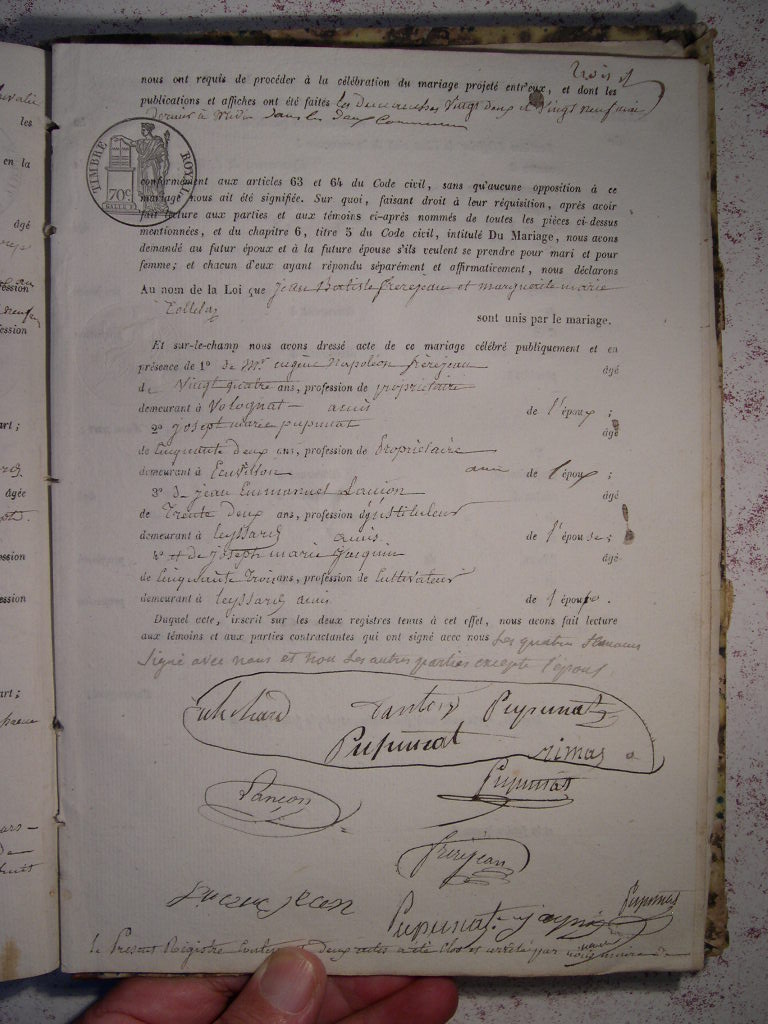 trois et
nous ont requis de procéder à la célébration du mariage projeté entr'eux, et dont les
publications et affiches ont été faites les Dimanches Vingt deux et Vingt neuf mai
Dernier à Midi dans les deux Communes
TIMBRE ROYAL
70c
conformément aux articles 63 et 64 du Code civil, sans qu'aucune opposition à ce
mariage nous ait été signifiée. Sur quoi, faisant droit à leur réquisition, après avoir
fait lecture aux parties et aux témoins ci-après nommés de toutes les pièces ci-dessus
mentionnées, et du chapitre 6, titre 5 du Code civil, intitulé Du Mariage, nous avons
demandé au futur époux et à la future épouse s'ils veulent se prendre pour mari et pour
femme; et chacun d'eux ayant répondu séparément et affirmativement, nous déclarons
Au nom de la Loi que Jean Batiste frerejean et marguerite marie
sont unis par le mariage.
Et sur-le-champ nous avons dressé acte de ce mariage célébré publiquement et en
présence de 1º de Mr eugène Napoléon frèrejean âgé
de Vingt quatre ans, profession de propriétaire
demeurant à Volognat amis de l'époux ;
2º joseph marie pupunat âgé
de Cinquante deux ans, profession de Propriétaire
demeurant à ami de l'époux ;
3º De jean Emmanuel âgé
de Trente deux ans, profession d'instituteur
demeurant à leyssard amis de l'épouse ;
4º et de joseph marie jacquin âgé
de Cinquante Trois ans, profession de Cultivateur
demeurant à leyssard amis de l'épouse .
Duquel acte, inscrit sur les deux registres tenus à cet effet, nous avons fait lecture
aux témoins et aux parties contractantes qui ont signé avec nous Les quatres temoins
Signé avec nous et non Les autres parties excepté l'époux
Pupunat
Pupunat
Pupunat
frèrejean
Pupunat
Pupunat
Le Présent Registre Contenant Deux actes a été Clos et arrêté par nous maire de